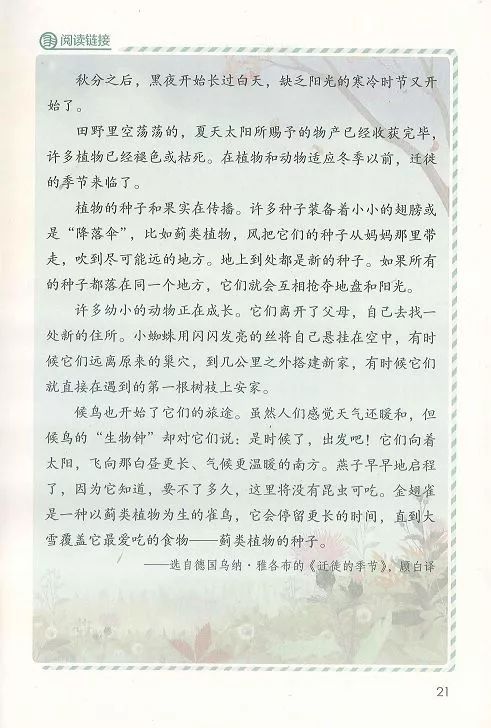 阅读链接
秋分之后，黑夜开始长过白天，缺乏阳光的寒冷时节又开
始了。
田野里空荡荡的，夏天太阳所赐予的物产已经收获完毕，
许多植物已经褪色或枯死。在植物和动物适应冬季以前，迁徙
的季节来临了。
植物的种子和果实在传播。许多种子装备着小小的翅膀或
是“降落伞”，比如蓟类植物，风把它们的种子从妈妈那里带
走，吹到尽可能远的地方。地上到处都是新的种子。如果所有
的种子都落在同一个地方，它们就会互相抢夺地盘和阳光。
许多幼小的动物正在成长。它们离开了父母，自己去找一
处新的住所。小蜘蛛用闪闪发亮的丝将自己悬挂在空中，有时
候它们远离原来的巢穴，到几公里之外搭建新家，有时候它们
就直接在遇到的第一根树枝上安家。
候鸟也开始了它们的旅途。虽然人们感觉天气还暖和，但
候鸟的“生物钟”却对它们说：是时候了，出发吧！它们向着
太阳，飞向那白昼更长、气候更温暖的南方。燕子早早地启程
了，因为它知道，要不了多久，这里将没有昆虫可吃。金翅雀
是一种以蓟类植物为生的雀鸟，它会停留更长的时间，直到大
雪覆盖它最爱吃的食物——蓟类植物的种子。
——选自德国乌纳·雅各布的《迁徙的季节》，顾白译
21